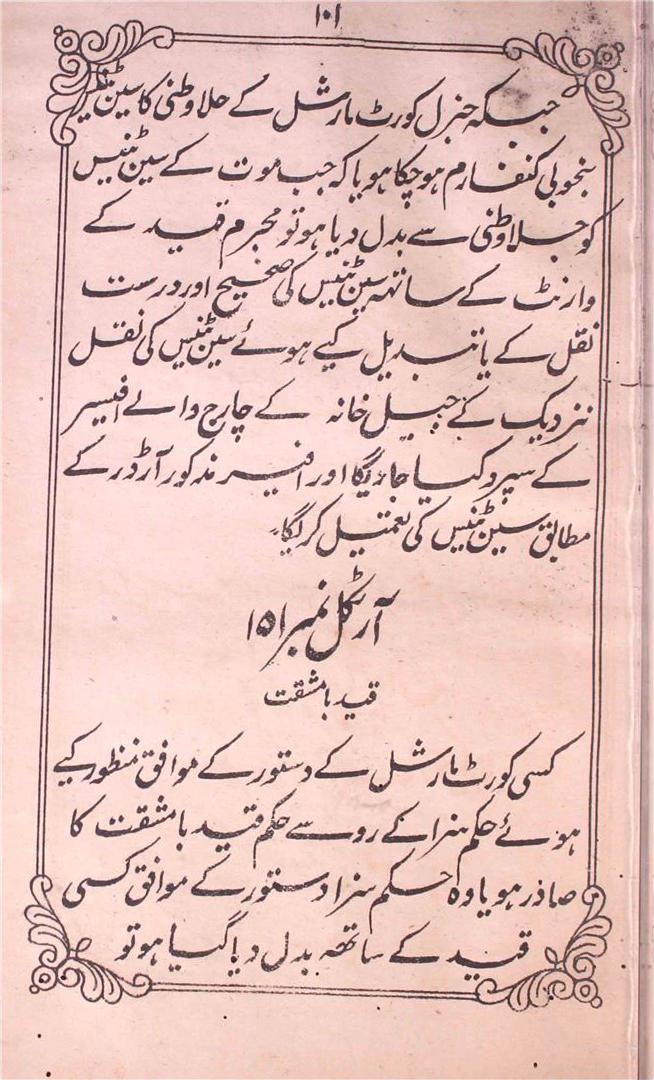 ۱۰۱
جبکہ جنرل کورٹ مارشل کے جلاوطنی کا سین ٹینس
بخوبی کنفارم ہوچکا ہو یا کہ جب موت کے سین ٹینس
کو جلاوطنی سے بدل دیا ہو تو مجرم قید کے
وارنٹ کے ساتھہ سین ٹینس کی صحیح اور درست
نقل کے یا تبدیل کیے ہوئے سین ٹینس کی نقل
نزدیک کے جیل خانہ کے چارج والے افیسر
کے سپرد کیا جاویگا اور افیسر مذکور آرڈر کے
مطابق سین ٹینس کی تعمیل کریگا۔
آرٹکل نمبر ۱۵۱
قید بامشقت
کسی کورٹ مارشل کے دستور کے موافق منظور کیے
ہوئے حکم سزا کے رو سے حکم قید بامشقت کا
صادر ہو یا وہ حکم سزا دستور کے موافق کسی
قید کے ساتھہ بدل دیا گیا ہو تو